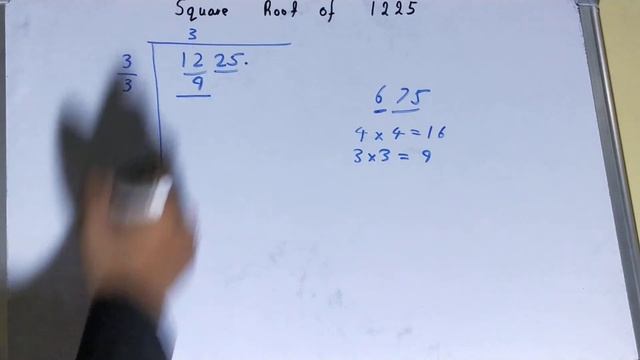 Square Root of 1225
3
3 12 25.
3 9
6 75
4 x 4 = 16
3 x 3 = 9